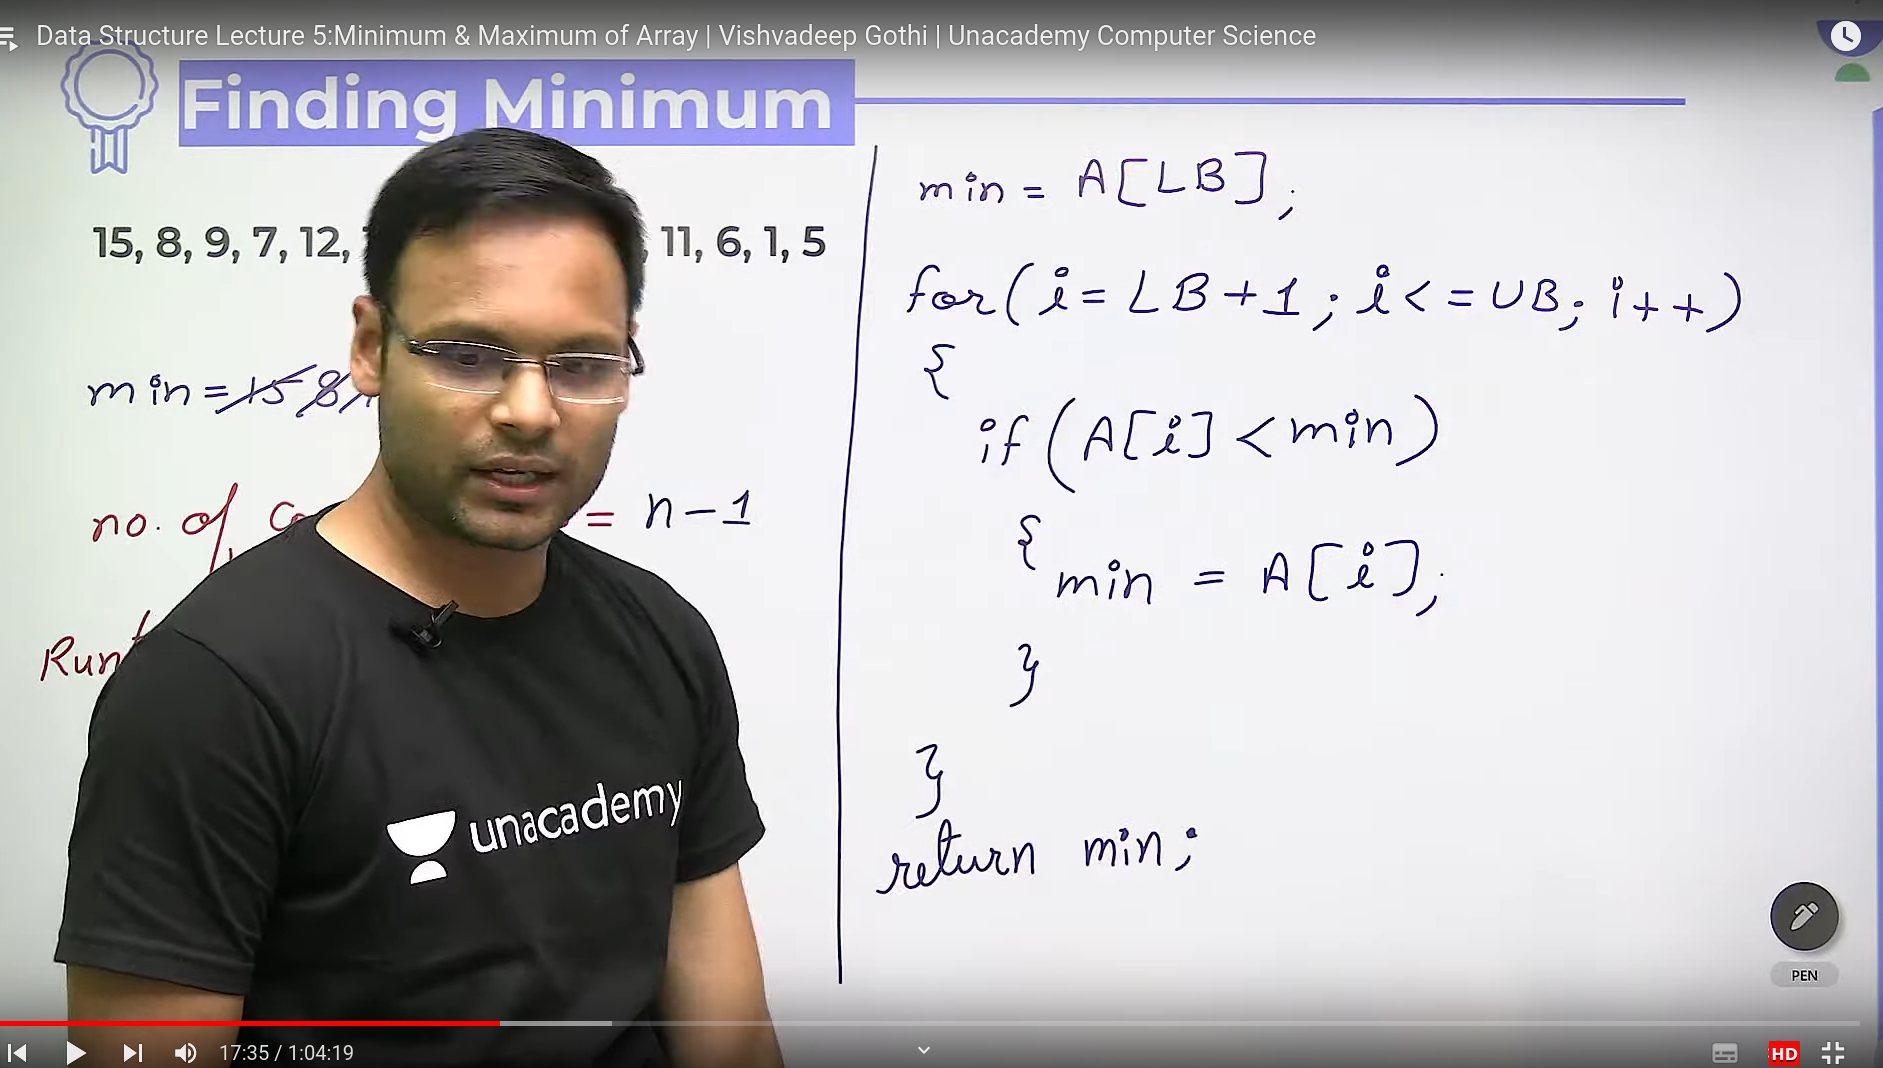 Data Structure Lecture 5:Minimum & Maximum of Array | Vishvadeep Gothi | Unacademy Computer Science
Finding Minimum
15, 8, 9, 7, 12,
, 11, 6, 1, 5
min = 15 8
no. of
= n-1
min = A[LB];
for(i=LB+1; i<=UB; i++)
{
if(A[i]<min)
{
min = A[i];
}
}
return min;
unacademy
PEN
17:35 / 1:04:19
HD